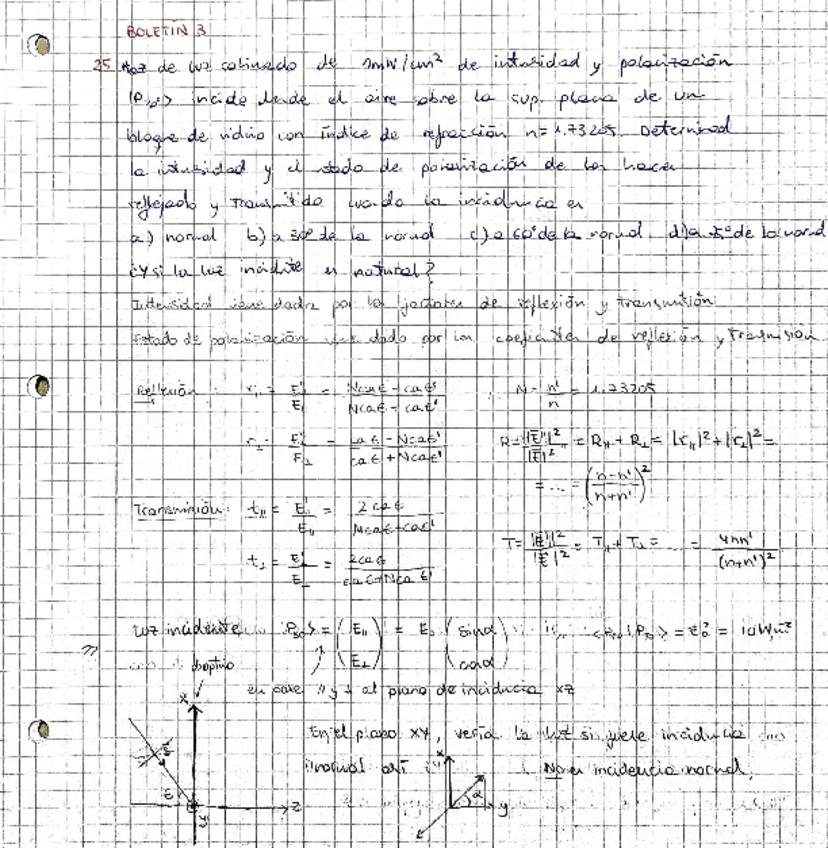 BOLETÍN 3
25 Haz de luz colimado de 1mW/cm² de intensidad y polarización
|P₃₀°> incide desde el aire sobre la sup. plana de un
bloque de vidrio con índice de refracción n=1.73205. Determinad
la intensidad y el estado de polarización de los haces
reflejado y transmitido cuando la incidencia es
a) normal b) a 30° de la normal c) a 60° de la normal d) a de la normal
¿Y si la luz incidente es natural?
Intensidad viene dada por los factores de reflexión y transmisión
Estado de polarización viene dado por los coeficientes de reflexión y transmisión
Reflexión: r∥ = E''∥/E∥ = (N cos ε - cos ε')/(N cos ε + cos ε') N = n'/n = 1.73205
r⊥ = E''⊥/E⊥ = (cos ε - N cos ε')/(cos ε + N cos ε') R = |E''|²/|E|² = R∥ + R⊥ = |r∥|² + |r⊥|² =
= ... = ((n-n')/(n+n'))²
Transmisión: t∥ = E'∥/E∥ = 2cos ε/(N cos ε + cos ε')
T = |E'|²/|E|² = T∥ + T⊥ = ... = 4nn'/(n+n')²
t⊥ = E'⊥/E⊥ = 2cos ε/(cos ε + N cos ε')
Luz incidente |P₃₀°> = (E∥ E⊥) = E₀ (sin α cos α) <P₃₀|P₃₀> = E₀² = 10 W/m²
dioptrio
en base ∥ y ⊥ al plano de incidencia xz
x
En el plano XY, vería la luz si fuese incidencia
normal así x No es incidencia normal,
ε z α y
y